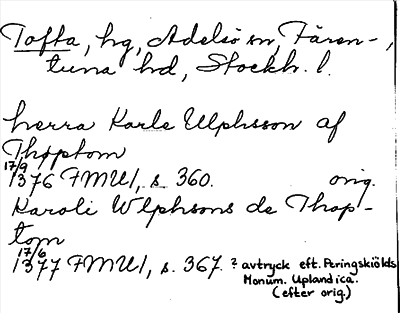 Tofta, hg, Adelsö sn, Fären-,
tuna hd, Stockh. l.
herra Karle Ulphsson af
Thoptom
17/9
1376 FMU 1, s. 360. orig.
Karoli Wlphsons de Thop-
tom
17/6
1377 FMU 1, s. 367. ? avtryck eft. Peringskiölds
Monum. Uplandica.
(efter orig.)